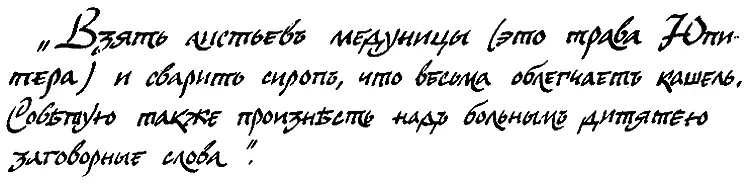 „Взять листьевъ медуницы (это трава Юпи-
тера) и сварить сиропъ, что весьма облегчаетъ кашель.
Совѣтую также произнѣсть надъ больнымъ дитятею
заговорные слова".